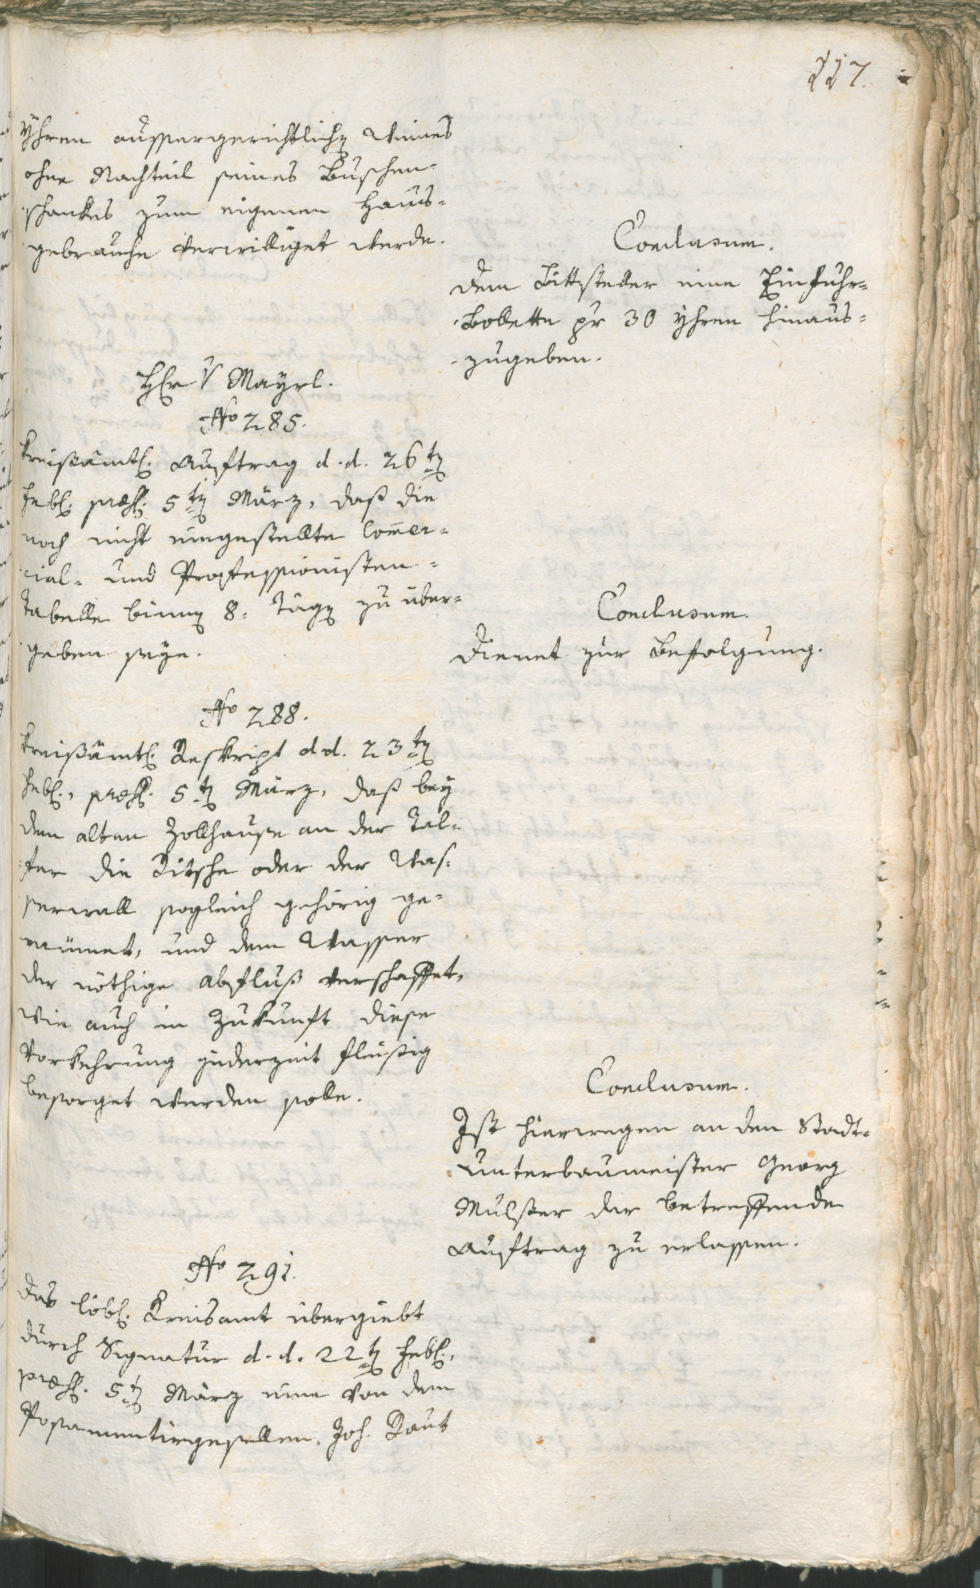 117.
Yhren aussergerichtlichen Weines
ohne Nachteil seines Buschen-
schankes zum eigenen Haus-
gebrauche verwilliget werde.
Conclusum.
Dem Bittsteller eine Einfuhr-
Bollette pr 30 Yhren hinaus-
zugeben.
Hr V Mayrl.
No 285.
Kreißämtl. Auftrag d. d. 26ten
Febr. præs. 5ten März, daß die
noch nicht eingestellte Com̄er-
cial- und Professionisten-
Tabelle binnen 8. Tägen zu über-
geben seye.
Conclusum.
Dienet zur Befolgung.
No 288.
Kreißämtl. Reskript d. d. 23ten
Febr., præs. 5ten März, daß bey
dem alten Zollhause an der Tal-
fer die Ritsche oder der Was-
serwall sogleich gehörig ge-
räumet, und dem Wasser
der nöthige Abfluß verschaffet,
wie auch in Zukunft diese
Vorkehrung jederzeit fleißig
besorget werden solle.
Conclusum.
Ist hierwegen an den Stadt-
Unterbaumeister Georg
Mulser der betreffende
Auftrag zu erlassen.
No 291.
Das löbl. Kreisamt übergiebt
durch Signatur d. d. 22ten Febr.,
præs. 5ten März eine von dem
Posamentirgesellen, Joh. Raut